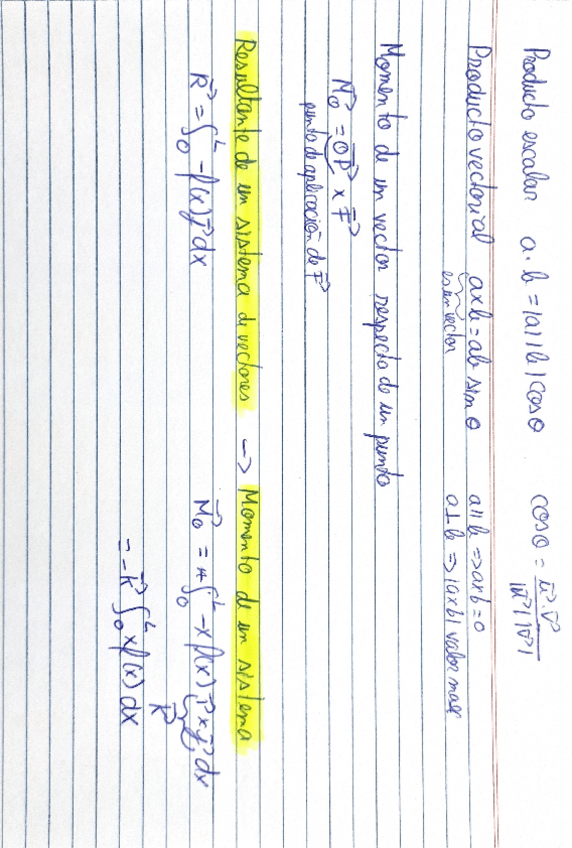 Producto escalar a·b = |a||b|cosθ cosθ = u⃗·v⃗ / |u⃗||v⃗|
Producto vectorial axb = ab sinθ a||b ⇒ axb = 0
es un vector a⊥b ⇒ |axb| valor max
Momento de un vector respecto de un punto
M⃗o = OP⃗ x F⃗
punto de aplicación de F⃗
Resultante de un sistema de vectores → Momento de un sistema
R⃗ = ∫₀ᴸ -f(x) j⃗ dx M⃗o = ∫₀ᴸ -x f(x) i⃗ x j⃗ dx
k⃗
= -k⃗ ∫₀ᴸ x f(x) dx